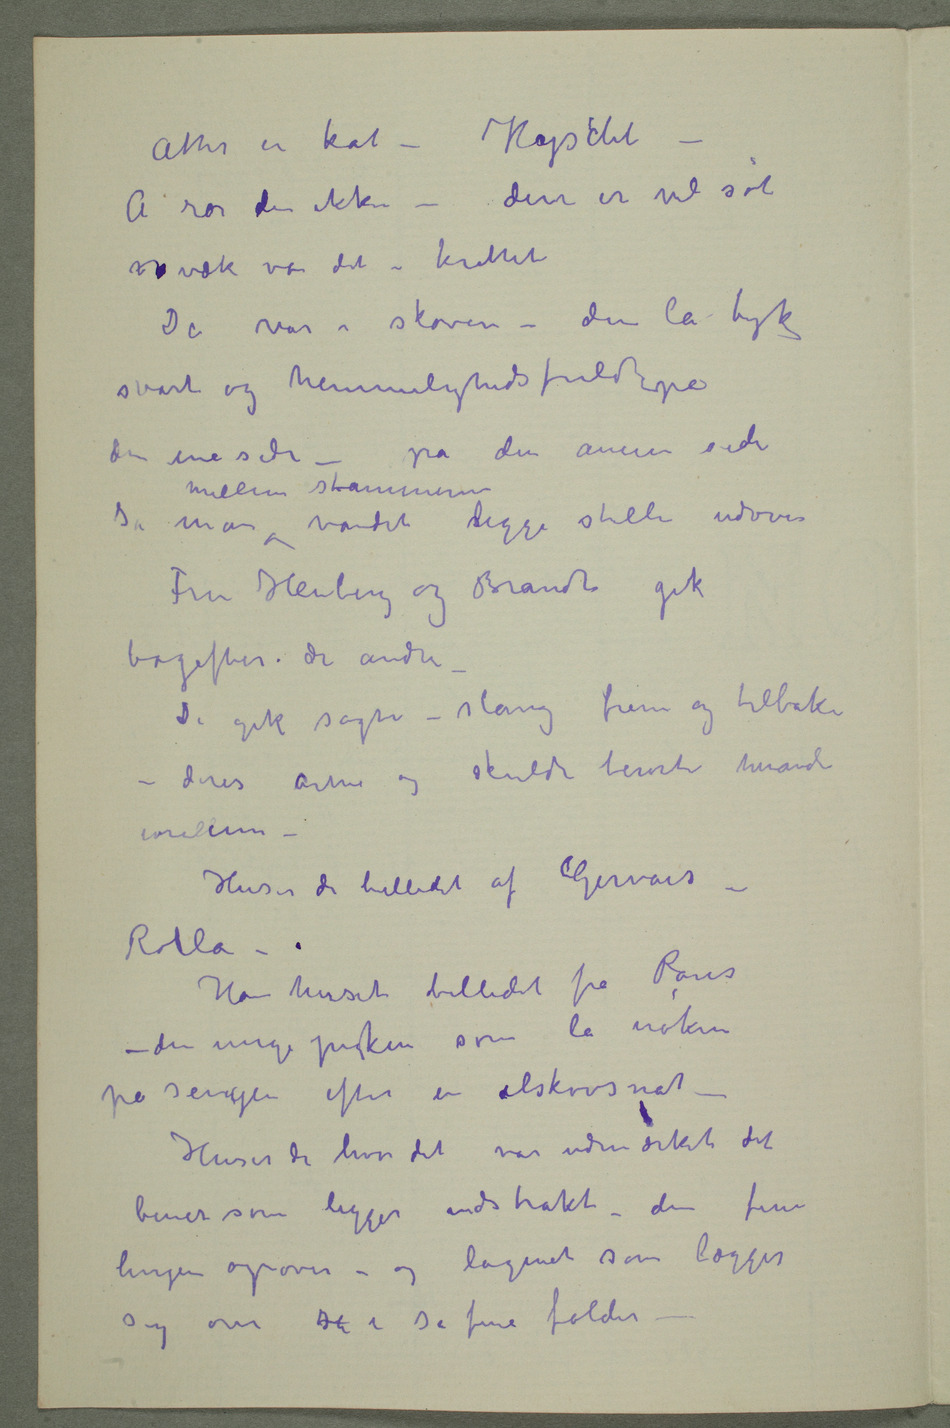 Atter en kat – Kys'cht –
Å rør den ikke – den er vel søt
væk var det i krattet
De var i skoven – den lå tyk
svart og hemmelighedsfuld på
den ene side – på den anden side
mellem stammerne
så man vandet ligge stille udover
Fru Heiberg og Brandt gik
bagefter de andre –
De gik sagte – slang frem og tilbake
– deres arme og skuldre berørte hinanden
imellem –
Husker de billedet af Gervais –
Rolla –
Han husket billedet fra Paris
– den unge piken som lå nøken
på sengen efter en elskovsnat –
Husker de hvor det var udmærket det
benet som ligger udstrakt – den fine
linjen opover – og lagenet som lægger
sig over så i så fine folder –